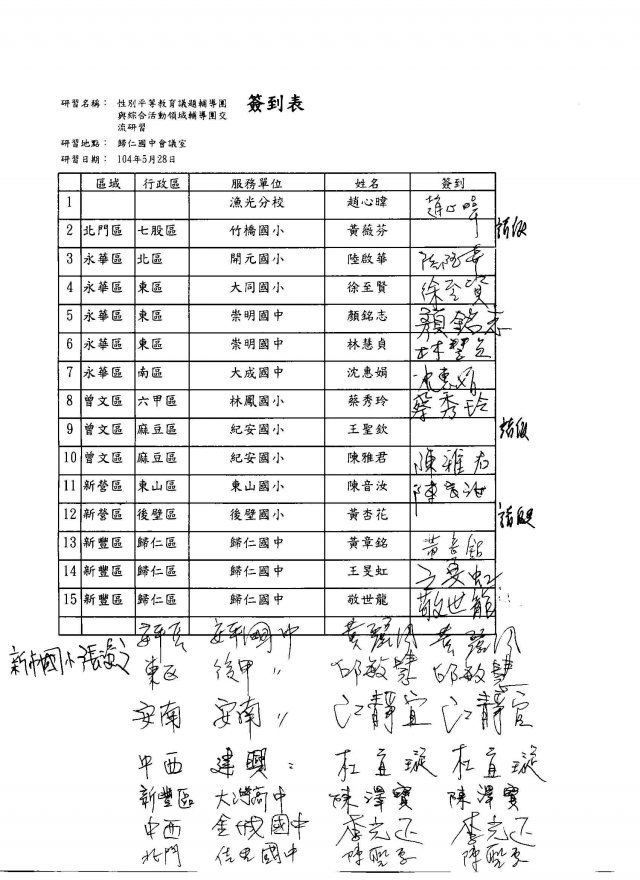 簽到表
研習名稱： 性別平等教育議題輔導團
與綜合活動領域輔導團交
流研習
研習地點： 歸仁國中會議室
研習日期： 104年5月28日
區域 行政區 服務單位 姓名 簽到
1 漁光分校 趙心暐 趙心暐
2 北門區 七股區 竹橋國小 黃薇芬 請假
3 永華區 北區 開元國小 陸啟華 陸啟華
4 永華區 東區 大同國小 徐至賢 徐至賢
5 永華區 東區 崇明國中 顏銘志 顏銘志
6 永華區 東區 崇明國中 林慧貞 林慧貞
7 永華區 南區 大成國中 沈惠娟 沈惠娟
8 曾文區 六甲區 林鳳國小 蔡秀玲 蔡秀玲
9 曾文區 麻豆區 紀安國小 王聖欽 請假
10 曾文區 麻豆區 紀安國小 陳雅君 陳雅君
11 新營區 東山區 東山國小 陳音汝 陳音汝
12 新營區 後壁區 後壁國小 黃杏花 請假
13 新豐區 歸仁區 歸仁國中 黃章銘 黃章銘
14 新豐區 歸仁區 歸仁國中 王旻虹 王旻虹
15 新豐區 歸仁區 歸仁國中 敬世龍 敬世龍
安平區 安平國中
新市國小
東區 後甲 〃 邱敏慧 邱敏慧
安南 安南 〃 江靜宜 江靜宜
中西 建興 〃 杜宜璇 杜宜璇
新豐區 大灣高中 陳澤寶 陳澤寶
中西 金城國中
北門 國中